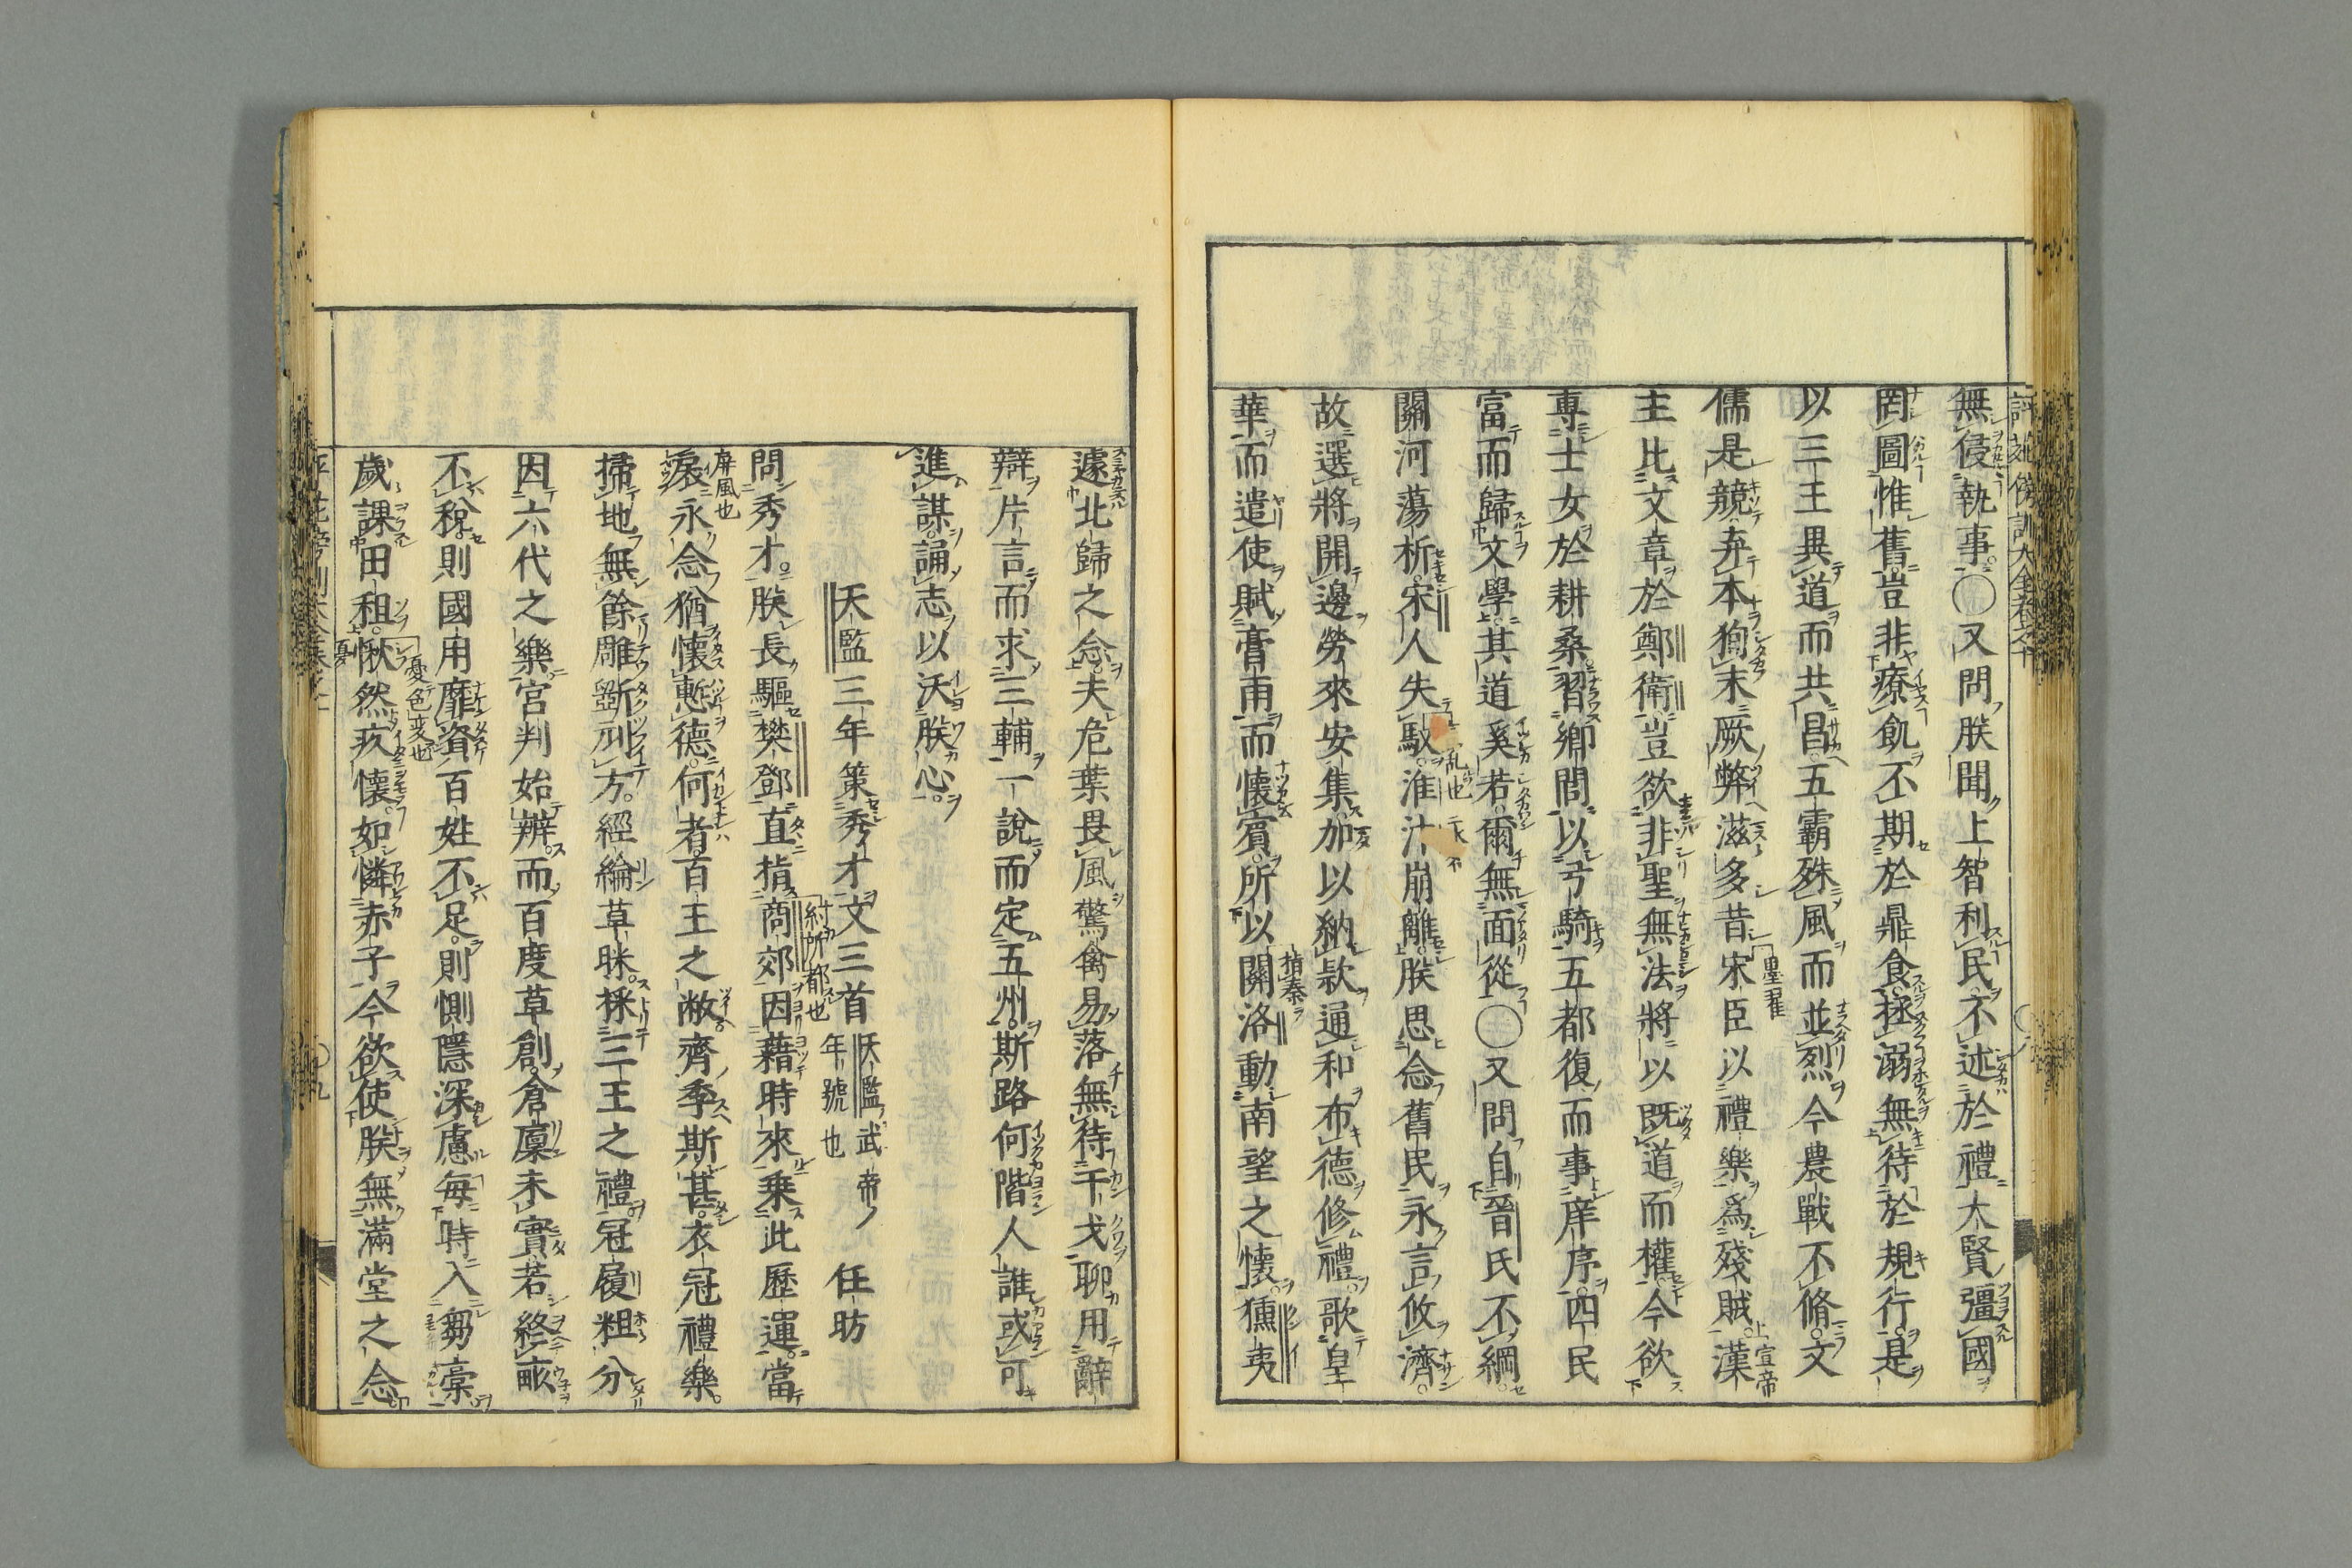 無侵執事○又問朕聞上智利民不述於禮大賢彊國
罔圖惟舊豈非療飢不期於鼎食拯溺無待於規行是
以三王異道而共昌五霸殊風而並烈今農戰不脩文
儒是競弃本殉末厥弊滋多昔宋臣以禮樂爲殘賊漢
主比文章於鄭衛豈欲非聖無法將以既道而權今欲
專士女於耕桑習鄉閭以弓騎五都復而事庠序四民
富而歸文學其道奚若爾無面從○又問自晉氏不綱
關河蕩析宋人失馭淮汴崩離朕思念舊民永言攸濟
故選將開邊勞來安集加以納款通和布德修禮歌皇
華而遣使賦膏雨而懷賓所以關洛動南望之懷獯夷
遽北歸之念夫危葉畏風驚禽易落無待干戈聊用辭
辯片言而求三輔一說而定五州斯路何階人誰或可
進謀誦志以沃朕心
天監三年策秀才文三首 天監武帝ノ年號也 任昉
問秀才朕長驅樊鄧直指商郊因藉時來乘此歷運當
扆永念猶懷慙德何者百王之敝齊季斯甚衣冠禮樂
掃地無餘雕斲刓方經綸草昧採三王之禮冠履粗分
因六代之樂宮判始辨而百度草創倉廩未實若終畝
不稅則國用靡資百姓不足則惻隱深慮每時入芻槀
歲課田租愀然疚懷如憐赤子今欲使朕無滿堂之念